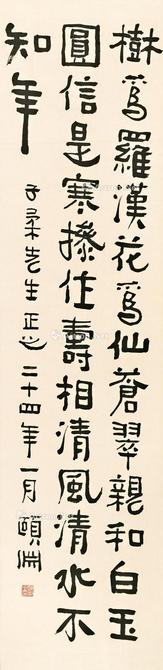 樹爲羅漢花爲仙蒼翠親和白玉
圓信是寒擽住壽相清風清水不
知年
子柔先生正之二十四年一月頤淵